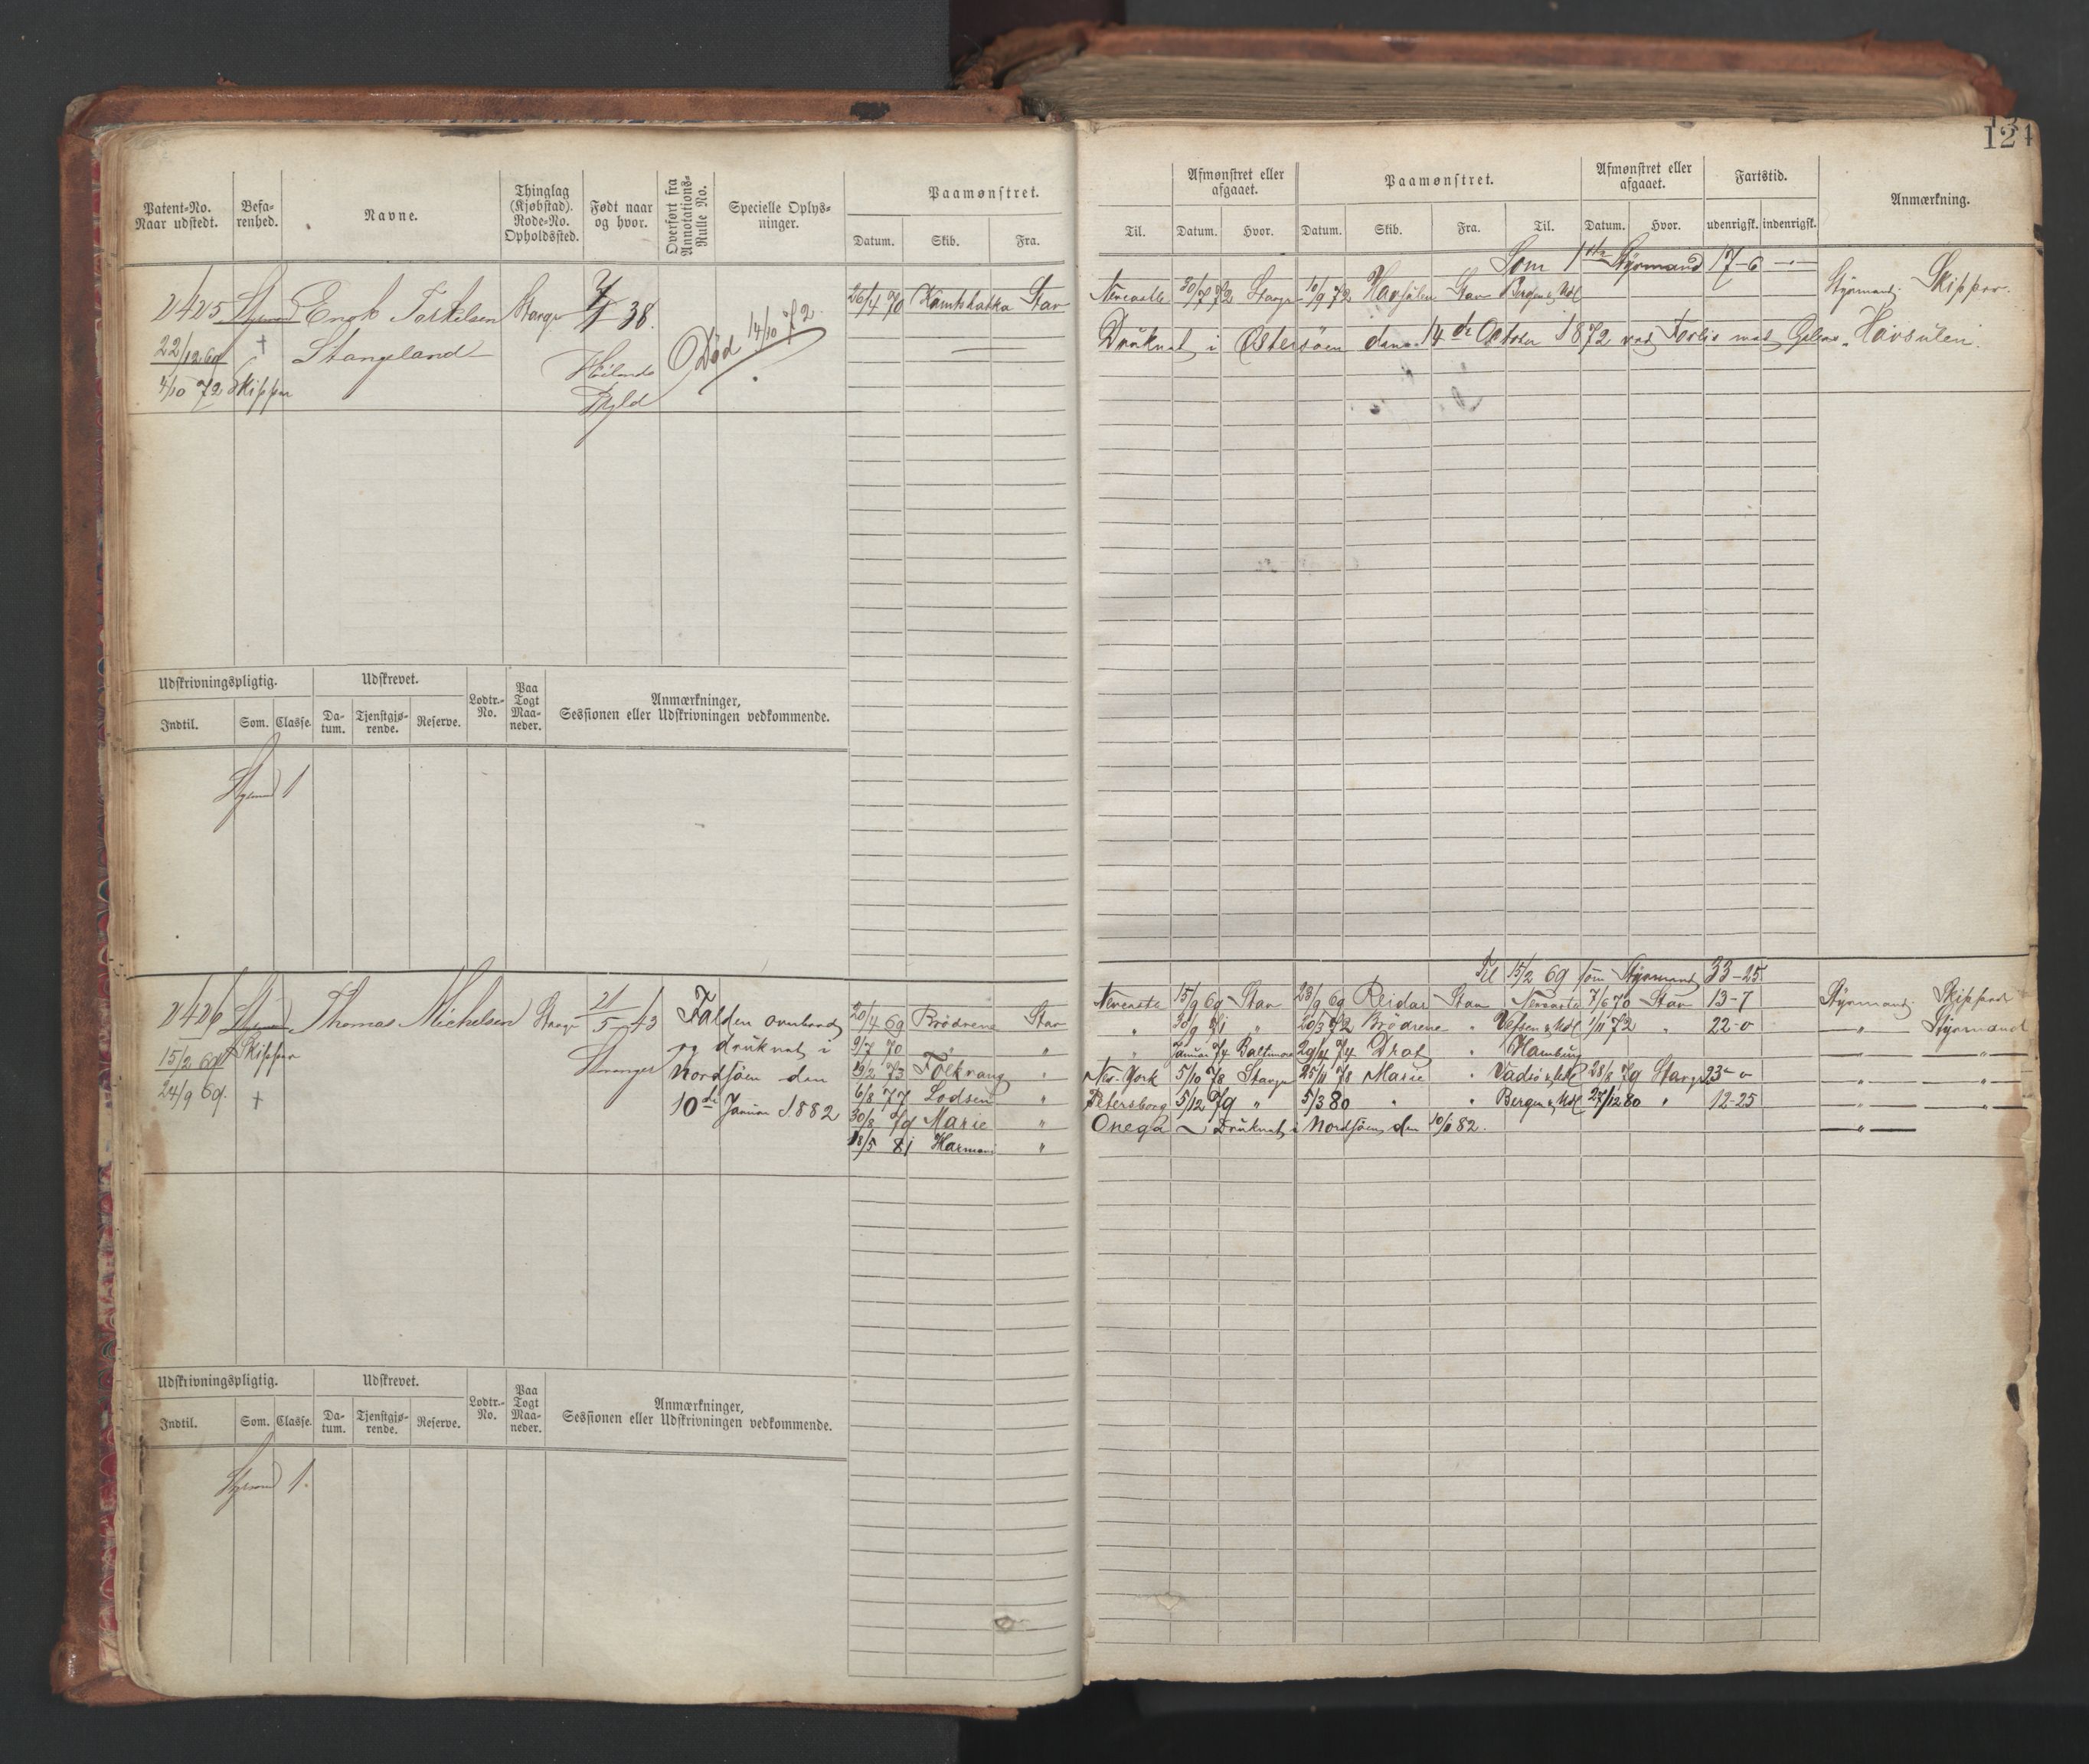 124
Patent-No.
Naar udstedt.
Befa-
renhed.
Navne.
Thinglag
(Kjøbstad).
Rode-No.
Opholdssted.
Født naar
og hvor.
Overført fra
Annotations-
Rulle No.
Specielle Oplys-
ninger.
Paamønstret.
Datum. Skib. Fra.
Til.
Afmønstret eller
afgaaet.
Datum. Hvor.
Paamønstret.
Datum. Skib. Fra. Til.
Afmønstret eller
afgaaet.
Datum. Hvor.
Fartstid.
udenrigsk. indenrigsk.
Anmærkning.
Som 1ste Styrmand 17-6
2425 Styrmand Enok Torkelsen Stavgr 38. 26/4 70 Kamtskatka Stav
22/12 69 + Stangeland
4/10 72 Skipper
Død 14/10 72
Newcastle 30/7 72 Stavgr 10/9 72 Havsulen Stav Bergen & Udl Styrmand. Skipper.
Druknet i Østersøen den 14de October 1872 ved Forlis med Havsulen.
Udskrivningspligtig. Udskrevet. Lodtr.-
No.
Paa
Togt
Maa-
neder.
Anmærkninger,
Sessionen eller Udskrivningen vedkommende.
Indtil. Som. Classe. Da-
tum. Tjenstgjø-
rende. Reserve.
Styrmand 1
Til 15/2 69 som Styrmand 33-25
2426 Styrmand Thomas Michelsen Stavgr 21/5 43
15/2 69 Skipper Stavanger
24/9 69. +
Falden overbord
og druknet i
Nordsøen den
10de Januar 1882
20/4 69 Brødrene Stav
9/7 70 " "
19/2 73 Folkvang "
6/8 77 Lodsen "
30/8 79 Marie "
18/5 81 Harmoni "
Newcastle 15/9 69 Stav 23/9 69 Reidar Stav Newcastle 7/6 70 Stav 13-7 Styrmand. Skipper
" 30/9 71 " 20/3 72 Brødrene " Vefsen & Udl 1/11 72 " 22-0 " Styrmand
" Januar 74 Baltimore 29/4 74 Drot " Hamburg " "
New-York 5/10 78 Stavgr 25/11 78 Marie " Vadsø & Udl 28/8 79 Stavgr 23-0 " "
Petersborg 5/12 79 " 5/3 80 " " Bergen & Udl 27/12 80 " 12-25 " "
Onega Druknet i Nordsøen den 10/1 82. "
Udskrivningspligtig. Udskrevet. Lodtr.-
No.
Paa
Togt
Maa-
neder.
Anmærkninger,
Sessionen eller Udskrivningen vedkommende.
Indtil. Som. Classe. Da-
tum. Tjenstgjø-
rende. Reserve.
Styrmand 1.